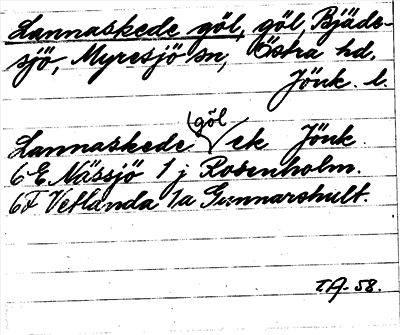 Lannaskede göl, göl, Bjäde-
sjö, Myresjö sn, Östra hd,
Jönk. l.
Lannaskede göl ek Jönk
6 E Nässjö 1 j Rosenholm.
6 F Vetlanda 1a Gunnarshult.
T.A. 58.